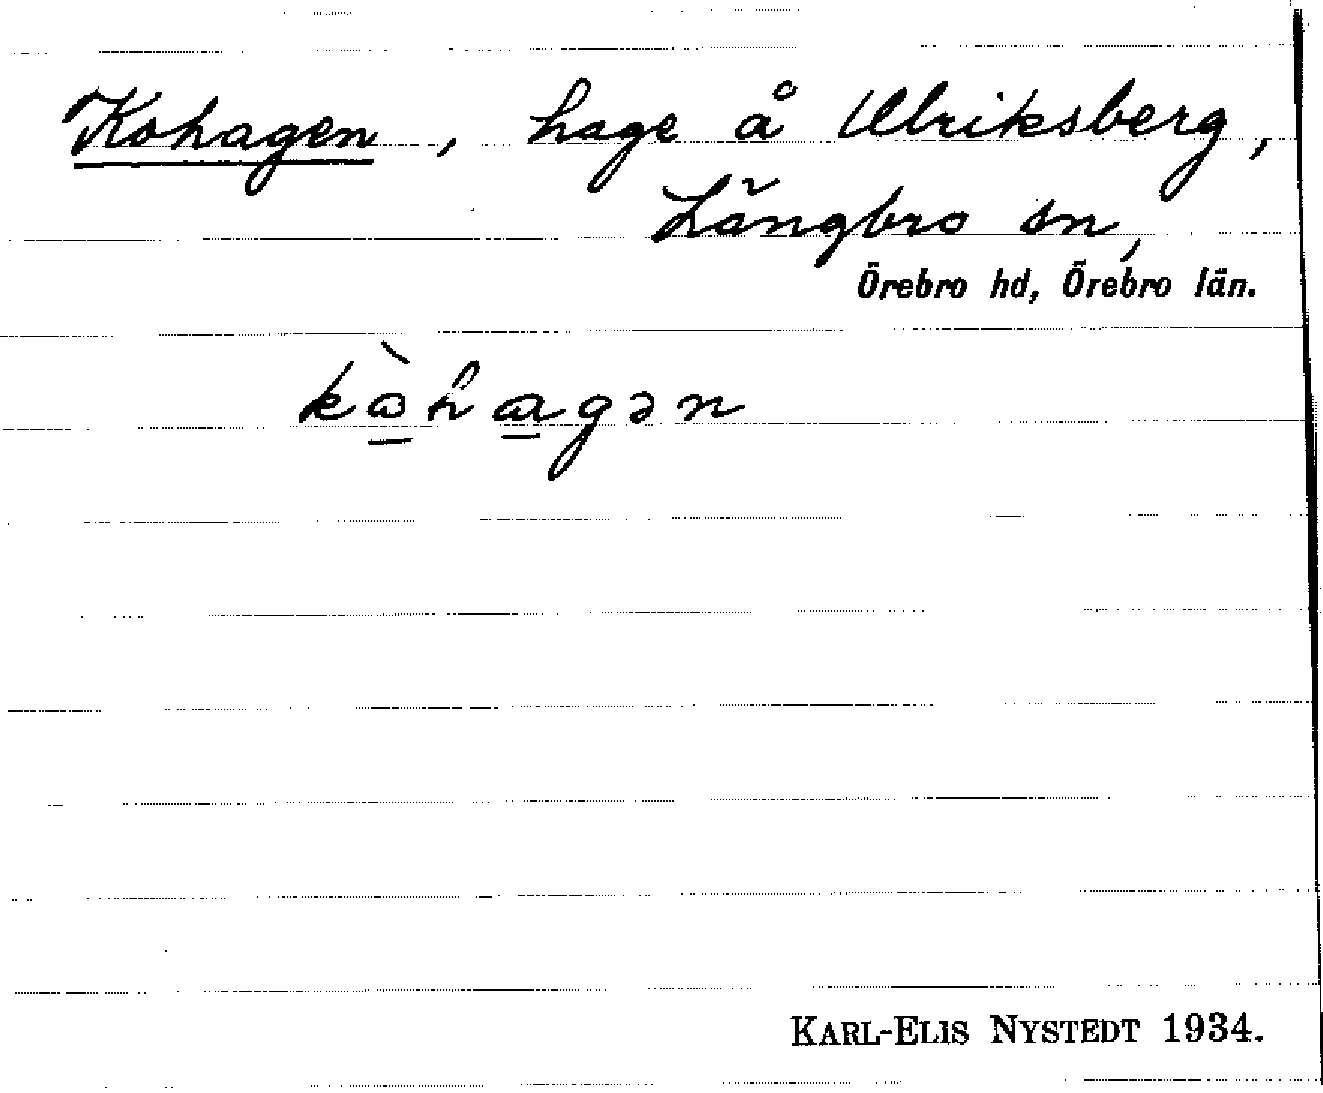 Kohagen, hage å Ulriksberg,
Långbro sn,
Örebro hd, Örebro län.
kὼ̲hɑ̲gən
KARL-ELIS NYSTEDT 1934.